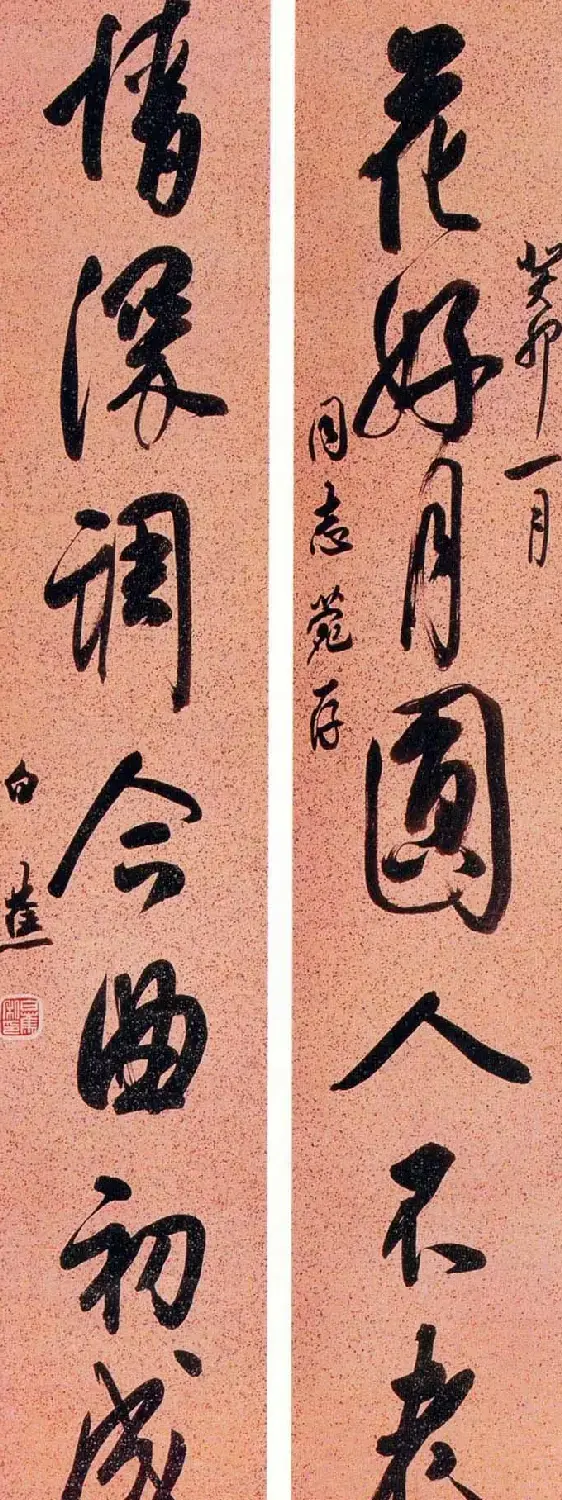 癸卯一月
花好月圆人不老
同志莞存
情深调合曲初成
白蕉